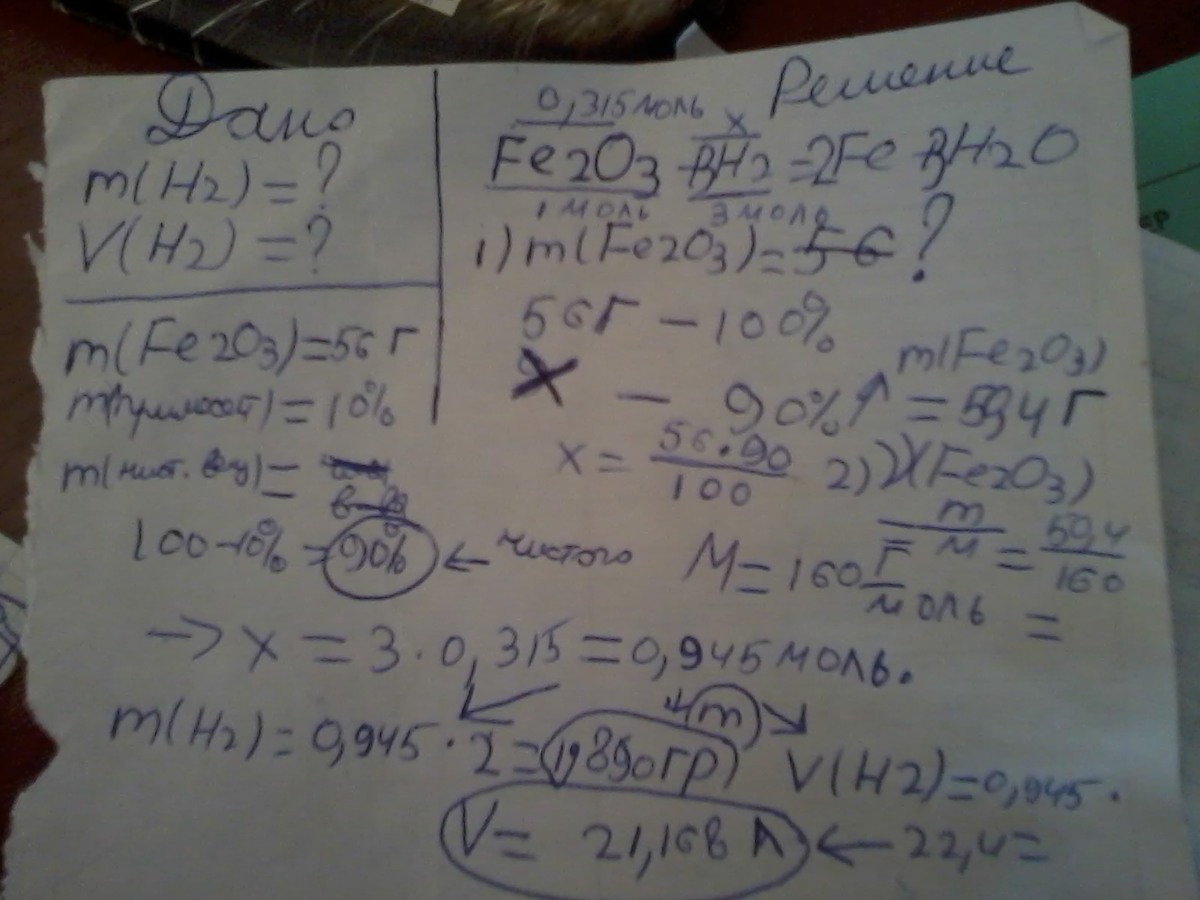 Дано
m(H2) = ?
V(H2) = ?
m(Fe2O3) = 56 г
= 10%
100-10% = 90% ← чистого
Решение
0,315 моль x
Fe2O3 3H2 = 2Fe 3H2O
1 моль 3 моль
1) m(Fe2O3) = 56 ?
56 г — 100%
x — 90% ↑ m(Fe2O3) = 50,4 г
x = 56·90/100
2) ν(Fe2O3) = m/M = 50,4/160 =
M = 160 г/моль
→ x = 3·0,315 = 0,945 моль.
m(H2) = 0,945·2 = 1,890 гр
(m)
V(H2) = 0,945·
V = 21,168 л ← 22,4 =